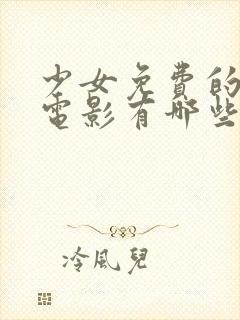 少女免费的
电影有哪些
冷風兒